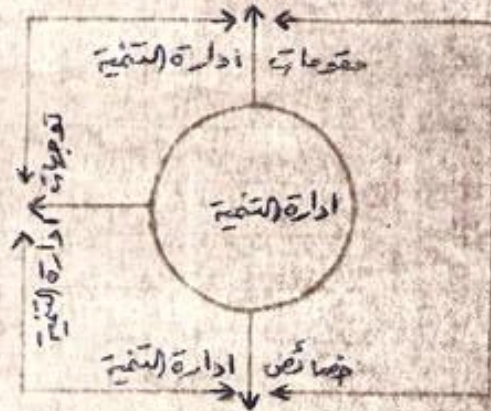 مقومات إدارة التنمية
توجهات إدارة التنمية
إدارة التنمية
خصائص إدارة التنمية